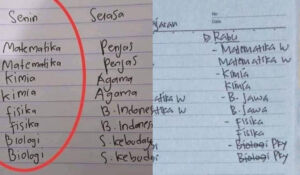 Senin Serasa
Matematika Penjas
Matematika Penjas
Kimia Agama
Kimia Agama
fisika B. Indones
fisika B. Indones
Biologi S. kebuda
Biologi S. kebuda
No
Date
Rabu
- Matematika W
Matematika W
- Kimia
Kimia
- B. Jawa
B. Jawa
- Fisika
Fisika
- Biologi Pky
Biologi Pky
atika W
atika W